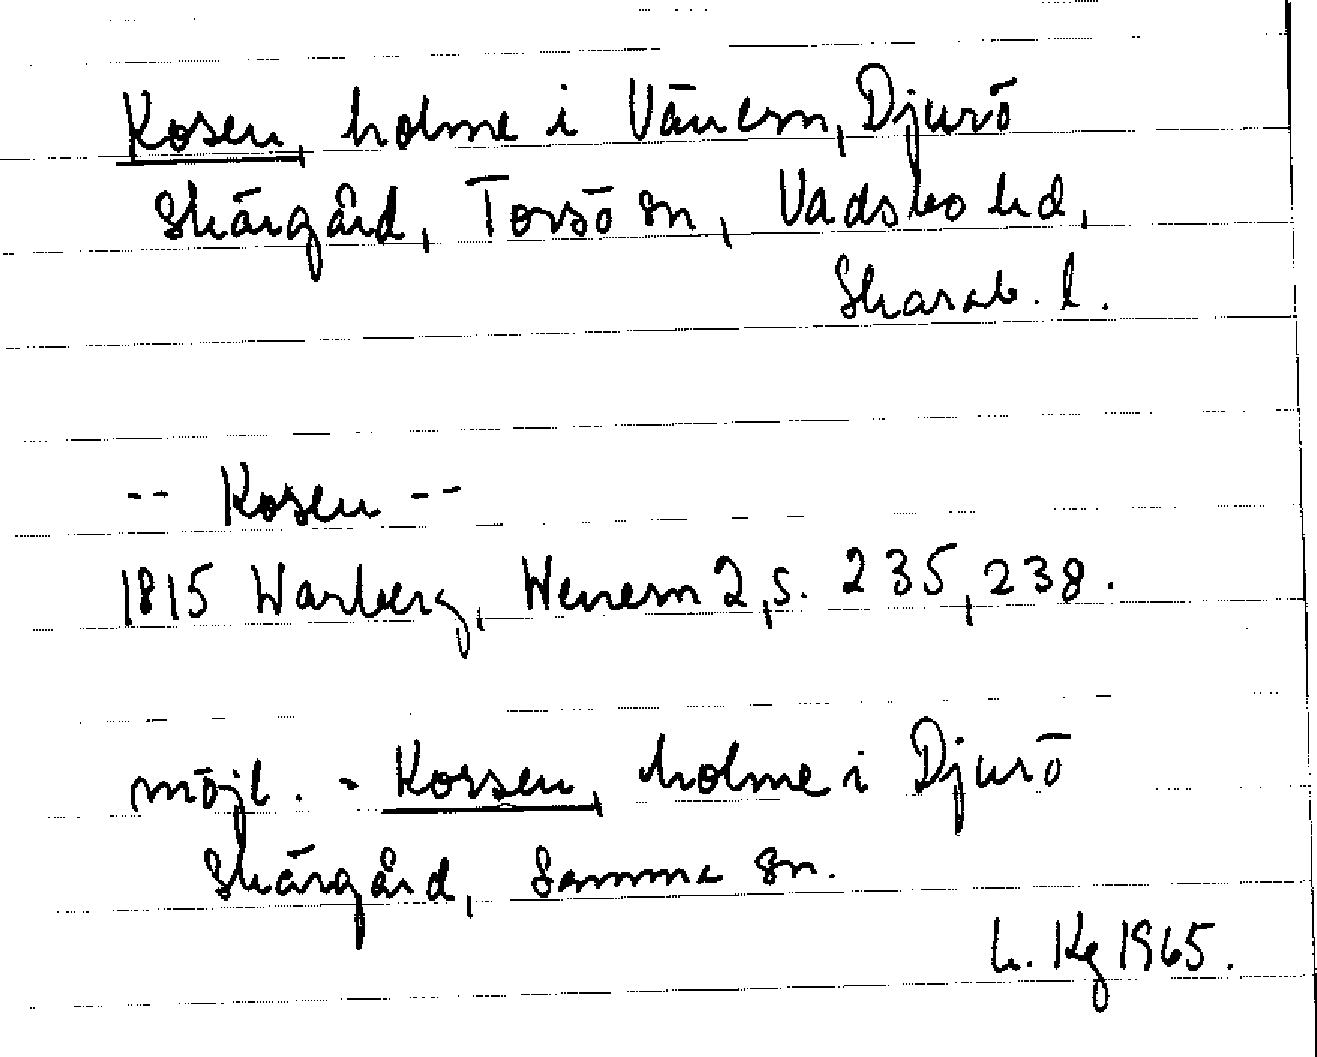 Kosen, holme i Vänern, Djurö
Skärgård, Torsö sn, Vadsbo hd,
Skarab. l.
-- Kosen --
1815 Warberg, Wenern 2, s. 235, 238.
möjl. = Korsen, holme i Djurö
Skärgård, Samma sn.
L. Kg 1965.